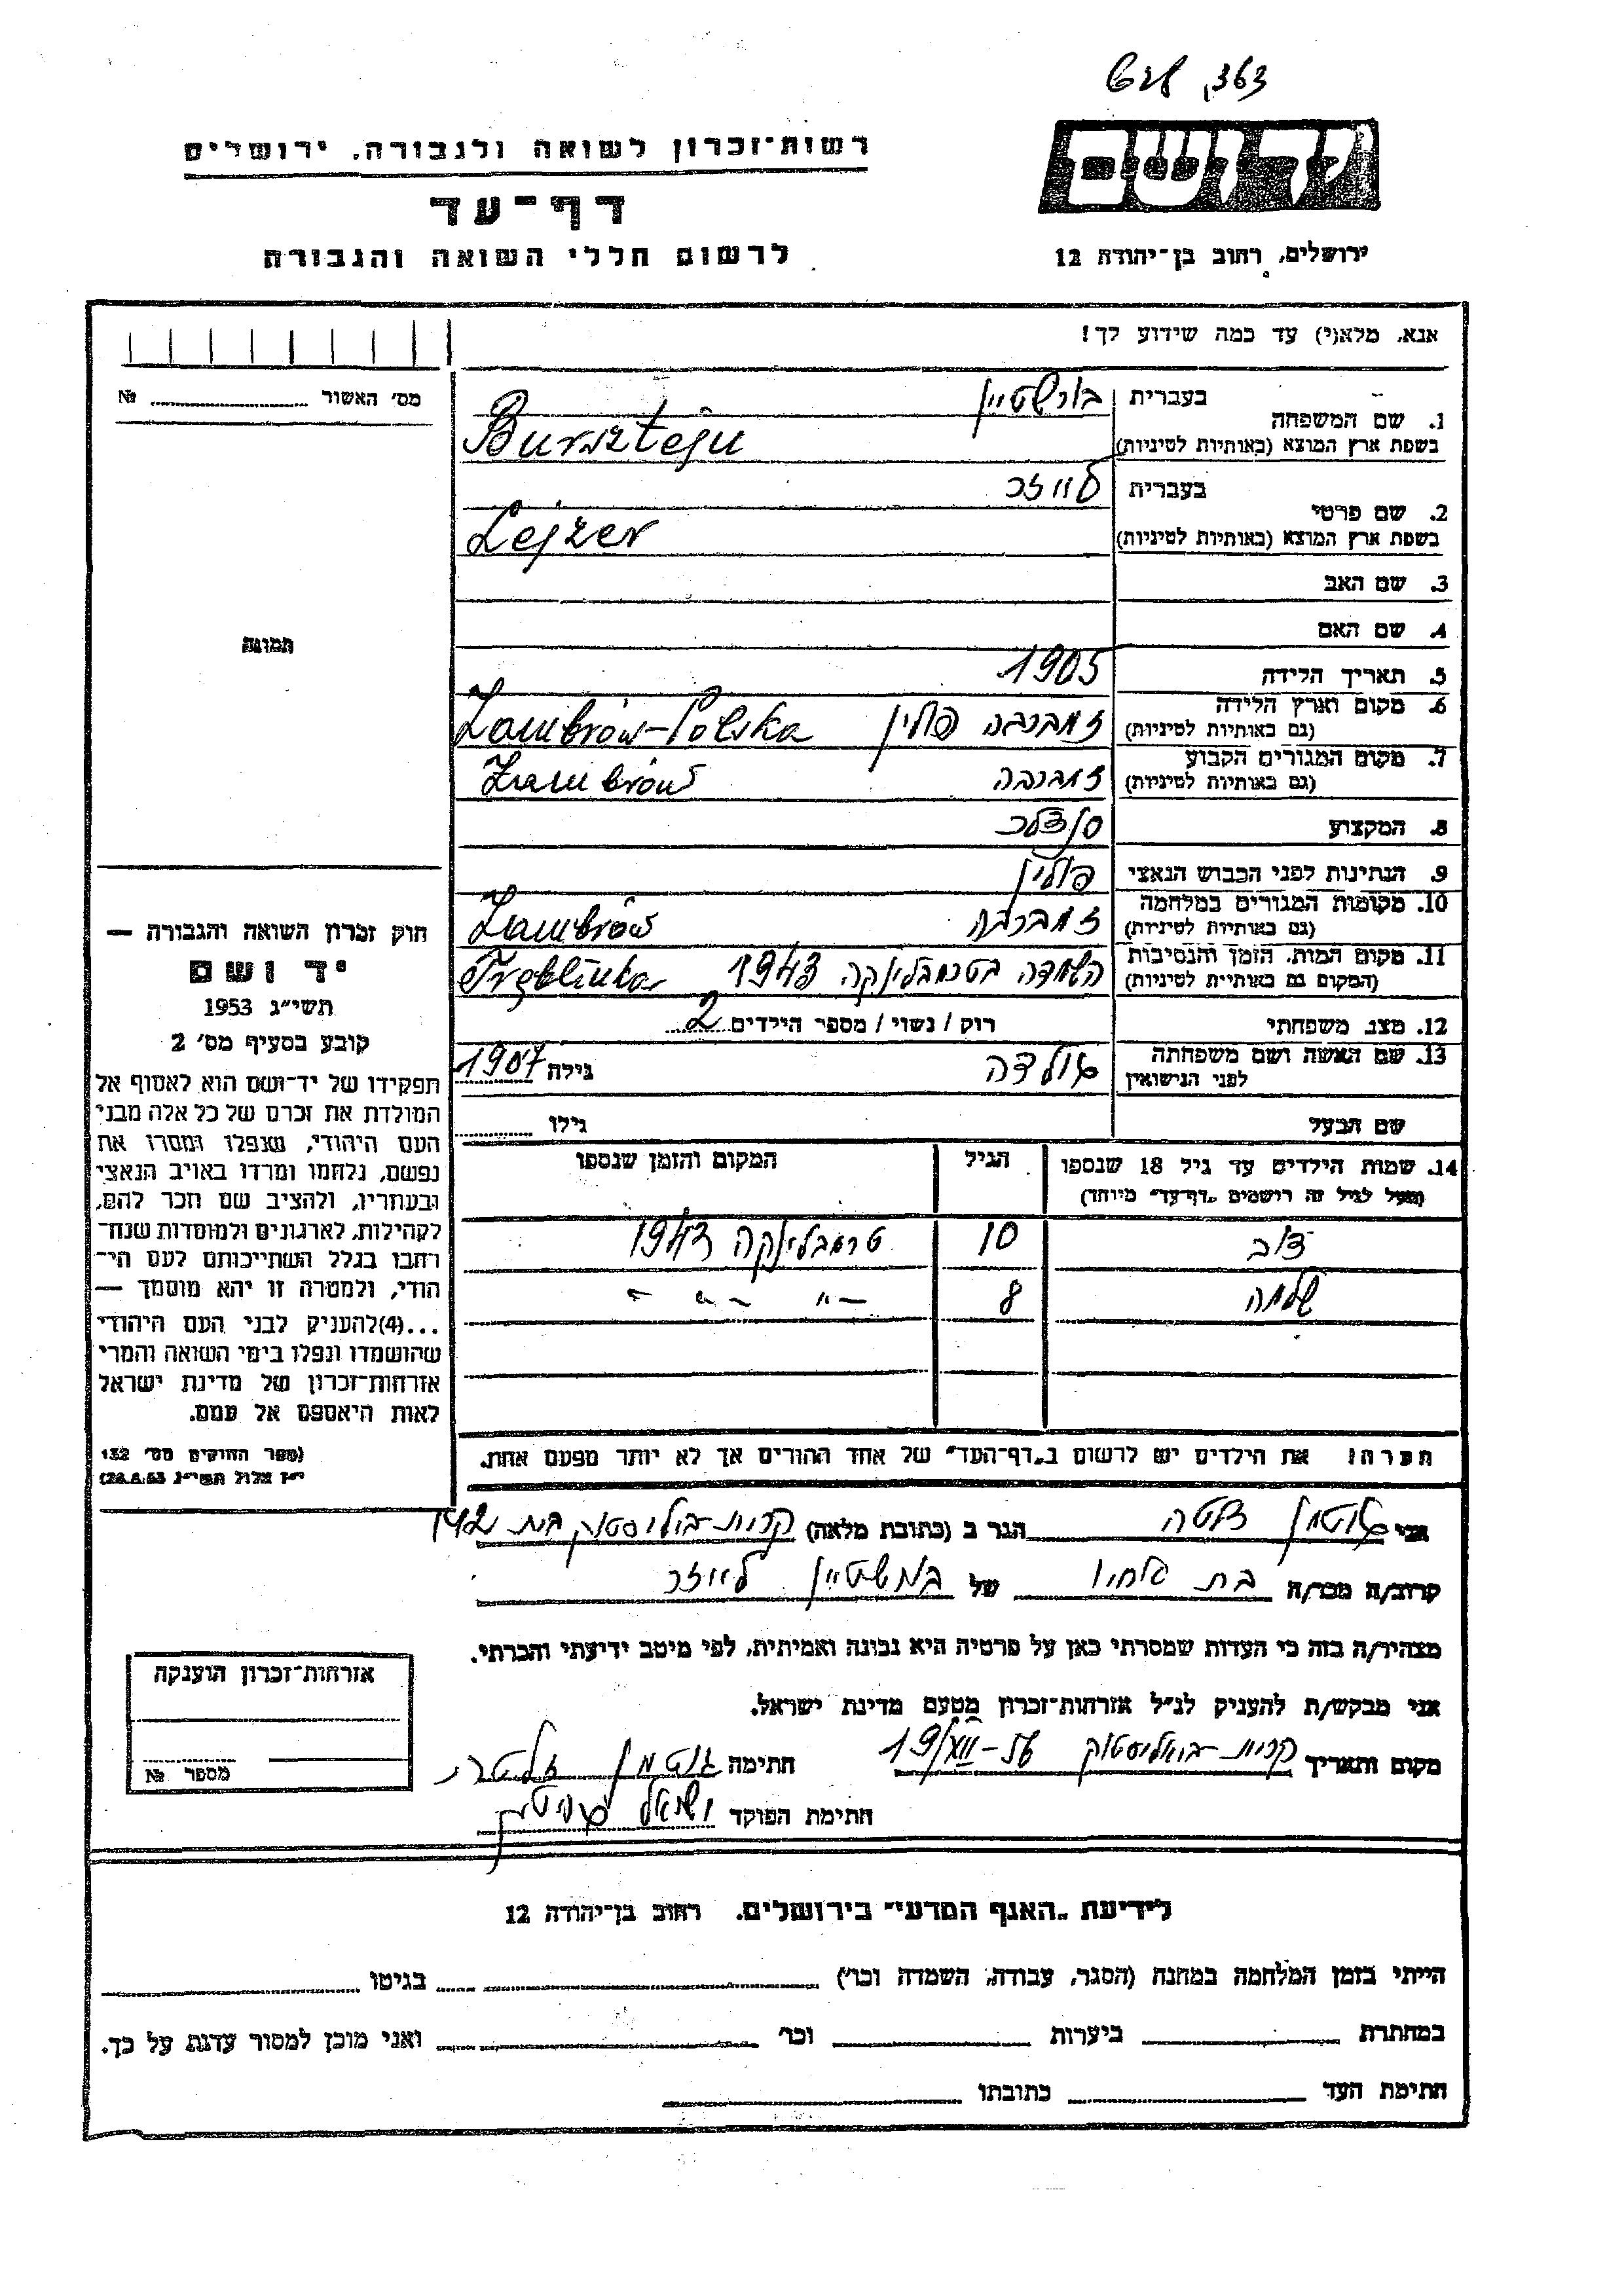 רשות־זכרון לשואה ולגבורה, ירושלים
דף־עד
לרשום חללי השואה והגבורה
ידושם
ירושלים, רחוב בן־יהודה 12
אנא, מלא(י) עד כמה שידוע לך!
מס׳ האשור № 
1. שם המשפחה
בעברית בורשטיין
בשפת ארץ המוצא (באותיות לטיניות) Bursztejn
2. שם פרטי
בעברית לייזר
בשפת ארץ המוצא (באותיות לטיניות) Lejzer
3. שם האב
4. שם האם
תמונה
5. תאריך הלידה 1905
6. מקום וארץ הלידה
(גם באותיות לטיניות) זמברבה פולין Zambrów-Polska
7. מקום המגורים הקבוע
(גם באותיות לטיניות) זמברבה Zambrów
8. המקצוע סנדלר
9. הנתינות לפני הכבוש הנאצי פולין
10. מקומות המגורים במלחמה
(גם באותיות לטיניות) זמברבה Zambrów
11. מקום המות, הזמן והנסיבות
(המקום גם באותיות לטיניות) השמדה בטרמבלינקה 1943 Tręblinka
12. מצב משפחתי רוק / נשוי / מספר הילדים 2
13. שם האשה ושם משפחתה
לפני הנישואין גולדה גילה 1907
שם הבעל גילו
14. שמות הילדים עד גיל 18 שנספו הגיל המקום והזמן שנספו
(מעל לגיל זה רושמים „דף־עד״ מיוחד)
10 טרמבלינקה 1943
שלמה 8 — ״ — ״ —
הערה: את הילדים יש לרשום ב„דף־העד״ של אחד ההורים אך לא יותר מפעם אחת.
חוק זכרון השואה והגבורה —
יד ושם
תשי״ג 1953
קובע בסעיף מס׳ 2
תפקידו של יד־ושם הוא לאסוף אל
המולדת את זכרם של כל אלה מבני
העם היהודי, שנפלו ומסרו את
נפשם, נלחמו ומרדו באויב הנאצי
ובעוזריו, ולהציב שם וזכר להם,
לקהילות, לארגונים ולמוסדות שנח־
רחבו בגלל השתייכותם לעם הי־
הודי, ולמטרה זו יהא מוסמך —
...(4)להעניק לבני העם היהודי
שהושמדו ונפלו בימי השואה והמרי
אזרחות־זכרון של מדינת ישראל
לאות היאספם אל עמם.
(ספר החוקים מס׳ 132
י״ז אלול תשי״ג 28.8.53)
אני גוטמן זלטה הגר ב (כתובת מלאה) קרית־ביאליסטוק בית 142
קרוב/ה מכר/ה בת אחיו של בורשטיין לייזר
מצהיר/ה בזה כי העדות שמסרתי כאן על פרטיה היא נכונה ואמיתית, לפי מיטב ידיעתי והכרתי.
אני מבקש/ת להעניק לנ״ל אזרחות־זכרון מטעם מדינת ישראל.
מקום ותאריך קרית־ביאליסטוק 19/XII-56 חתימה גוטמן זלטה
חתימת הפוקד ישראל
אזרחות־זכרון הוענקה
מספר №
לידיעת „האגף המדעי״ בירושלים, רחוב בן־יהודה 12
הייתי בזמן המלחמה במחנה (הסגר, עבודה, השמדה וכו׳) בגיטו
במחתרת ביערות וכו׳ ואני מוכן למסור עדות על כך.
חתימת העד כתובתו